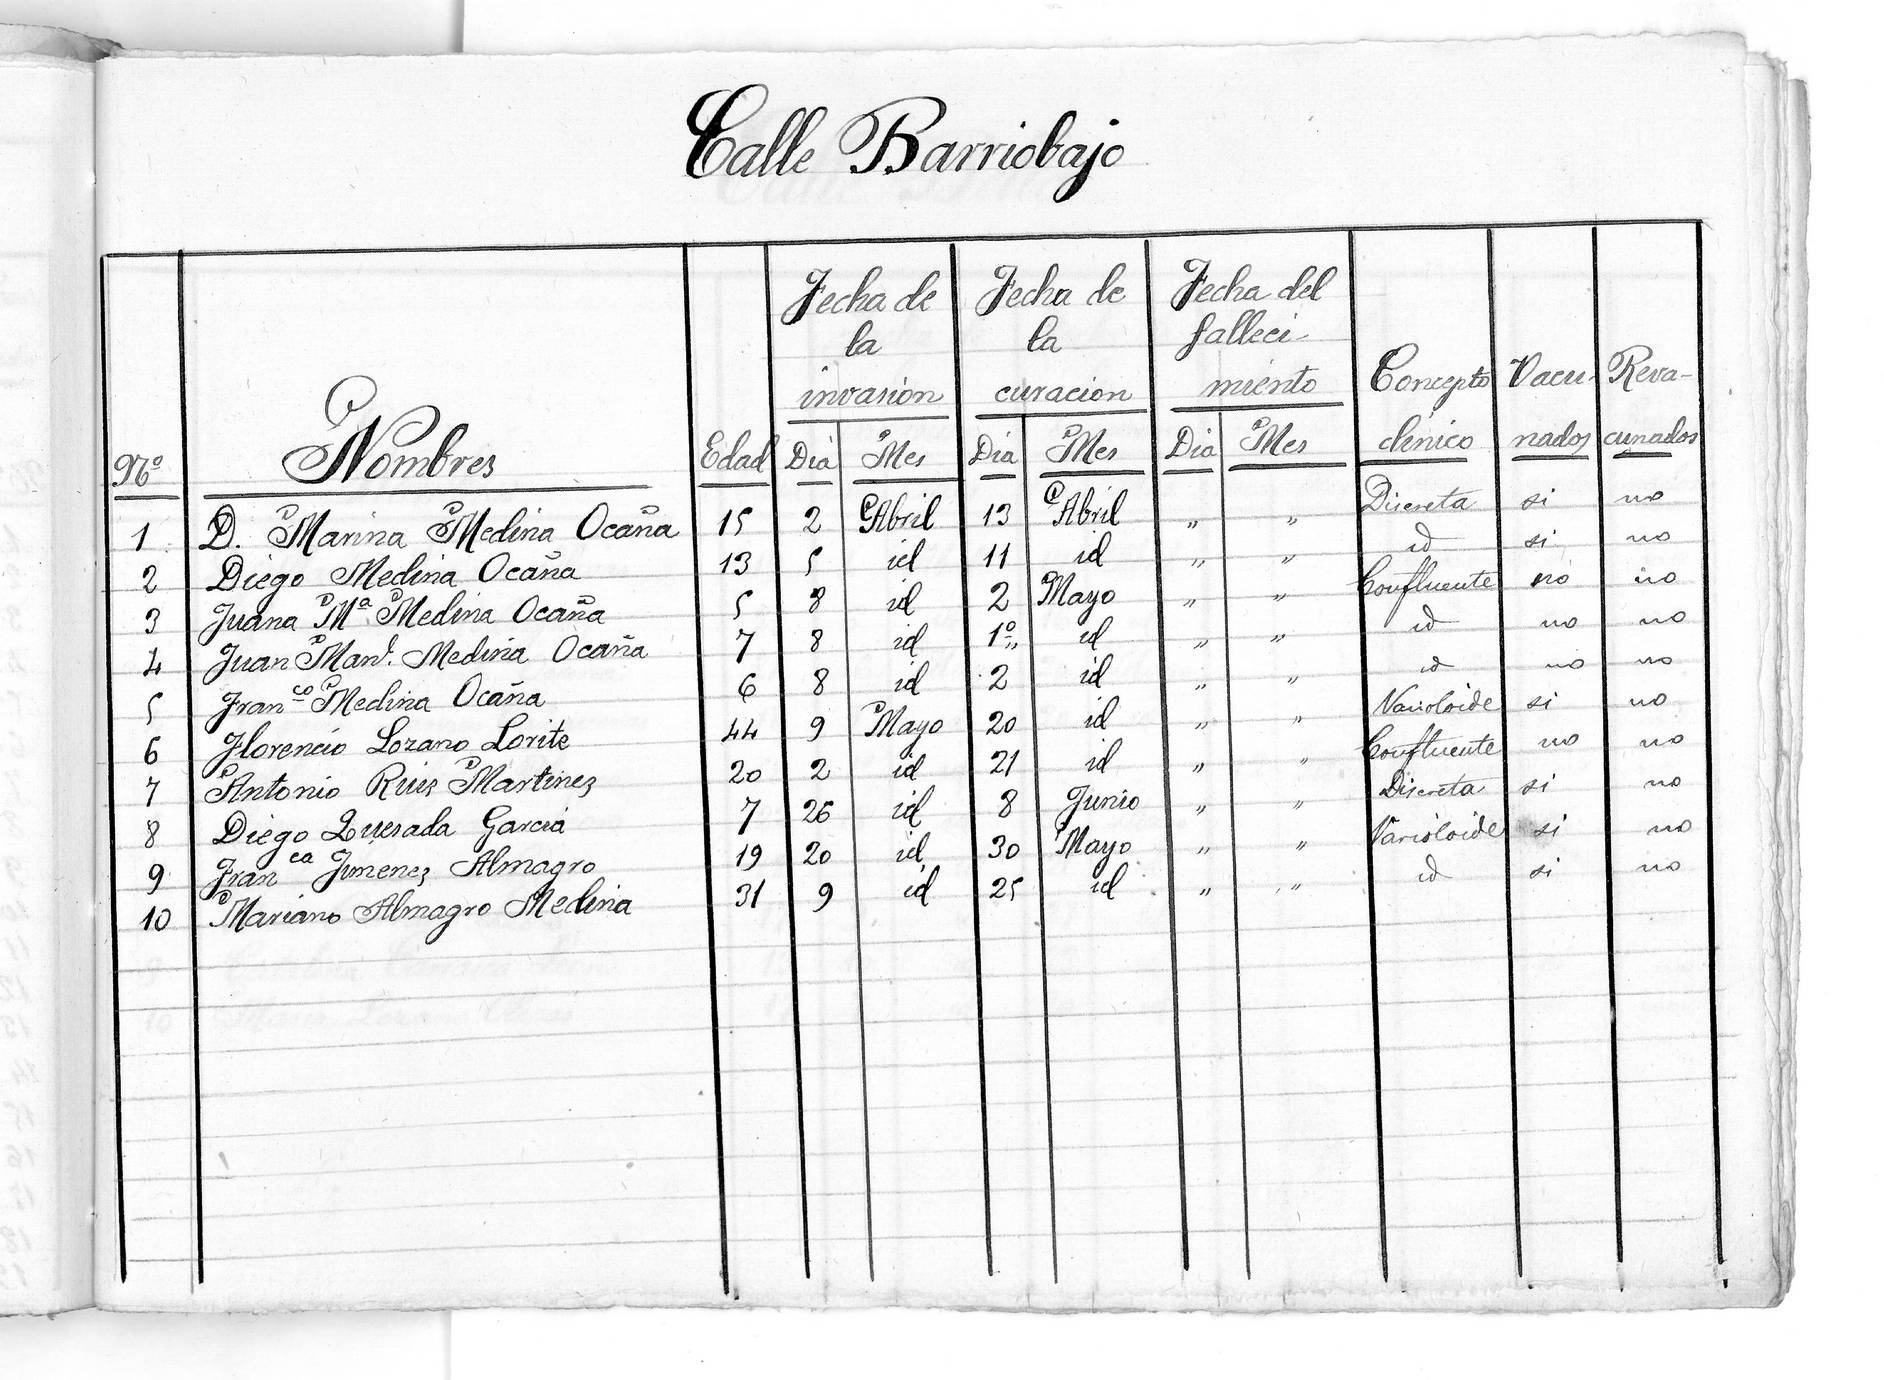 Calle Barriobajo
Nº Nombres Edad Fecha de la invasión Fecha de la curacion Fecha del falleci- miento Concepto clinico Vacu- nados Reva- cunados
Dia Mes Dia Mes Dia Mes
1 D. Marina Medina Ocaña 15 2 Abril 13 Abril " " Discreta si no
2 Diego Medina Ocaña 13 5 id 11 id " " id si no
3 Juana Mª Medina Ocaña 5 8 id 2 Mayo " " Confluente no no
4 Juan Manl. Medina Ocaña 7 8 id 1º id " " id no no
5 Franco Medina Ocaña 6 8 id 2 id " " id no no
6 Florencio Lozano Lorite 44 9 Mayo 20 id " " Varioloide si no
7 Antonio Ruiz Martinez 20 2 id 21 id " " Confluente no no
8 Diego Quesada Garcia 7 26 id 8 Junio " " Discreta si no
9 Franca Jimenez Almagro 19 20 id 30 Mayo " " Varioloide si no
10 Mariano Almagro Medina 31 9 id 25 id " " id si no